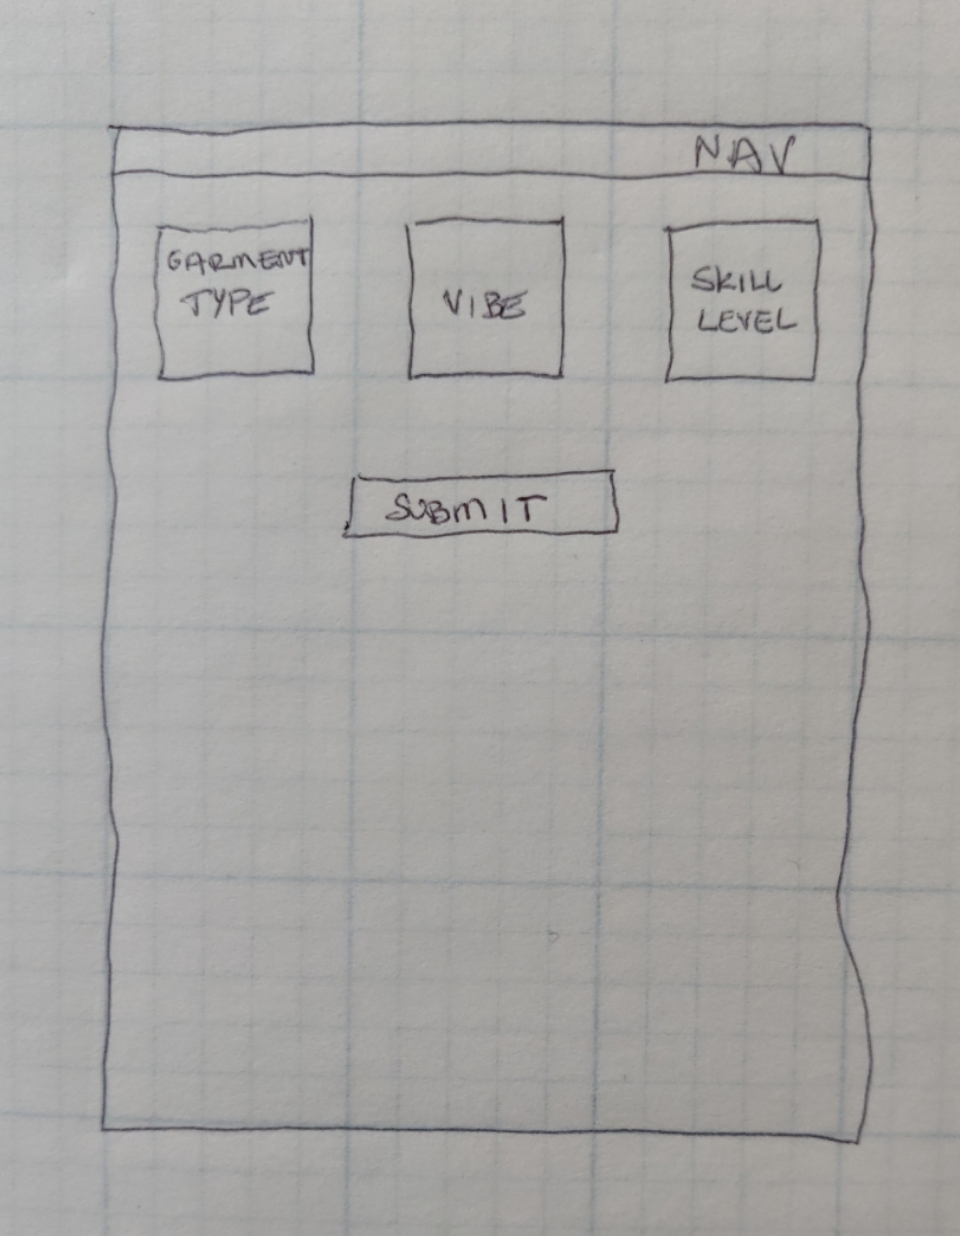 NAV
GARMENT
TYPE
VIBE
SKILL
LEVEL
SUBMIT